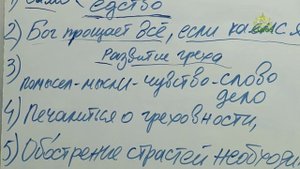 едство
2) Бог прощает всё, если каемся
Развитие греха
3)
помысел-мысли-чувство-слово
дело
4) Печалиться о греховности,
5) Обострение страстей необходи